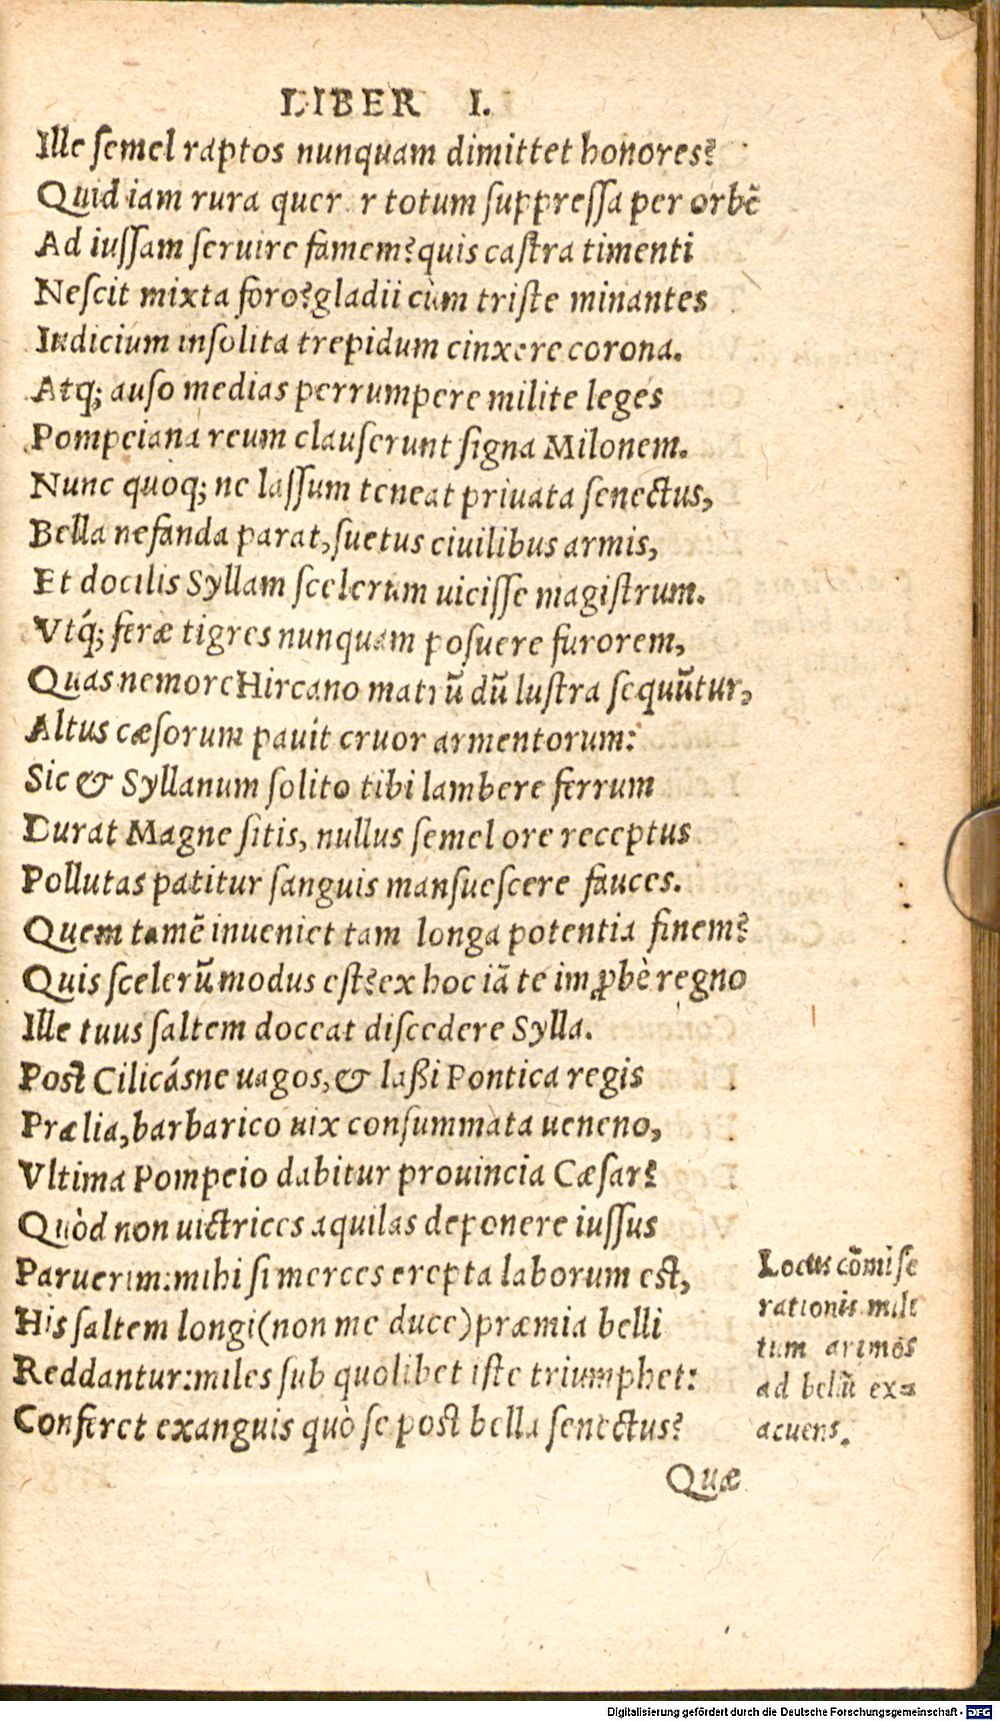 LIBER I.
Ille semel raptos nunquam dimittet honores?
Quid iam rura quer r totum suppressa per orbē
Ad iussam seruire famem? quis castra timenti
Nescit mixta foro? gladii cùm triste minantes
Iudicium insolita trepidum cinxere corona.
Atq; auso medias perrumpere milite leges
Pompeiana reum clauserunt signa Milonem.
Nunc quoq; ne lassum teneat priuata senectus,
Bella nefanda parat, suetus ciuilibus armis,
Et docilis Syllam scelerum uicisse magistrum.
Vtq́; feræ tigres nunquam posuere furorem,
Quas nemore Hircano matrū dū lustra sequūtur,
Altus cæsorum pauit cruor armentorum:
Sic & Syllanum solito tibi lambere ferrum
Durat Magne sitis, nullus semel ore receptus
Pollutas patitur sanguis mansuescere fauces.
Quem tamē inueniet tam longa potentia finem?
Quis scelerū modus est? ex hoc iā te im ꝓbè regno
Ille tuus saltem doceat discedere Sylla.
Post Cilicásne uagos, & laßi Pontica regis
Prælia, barbarico uix consummata ueneno,
Vltima Pompeio dabitur prouincia Cæsar?
Quòd non uictrices aquilas deponere iussus
Paruerim: mihi si merces erepta laborum est,
His saltem longi (non me duce) præmia belli
Reddantur: miles sub quolibet iste triumphet:
Conferet exanguis quò se post bella senectus?
Locus cōmise
rationis mili
tum animos
ad bellū ex=
acuens.
Quæ
Digitalisierung gefördert durch die Deutsche Forschungsgemeinschaft - DFG